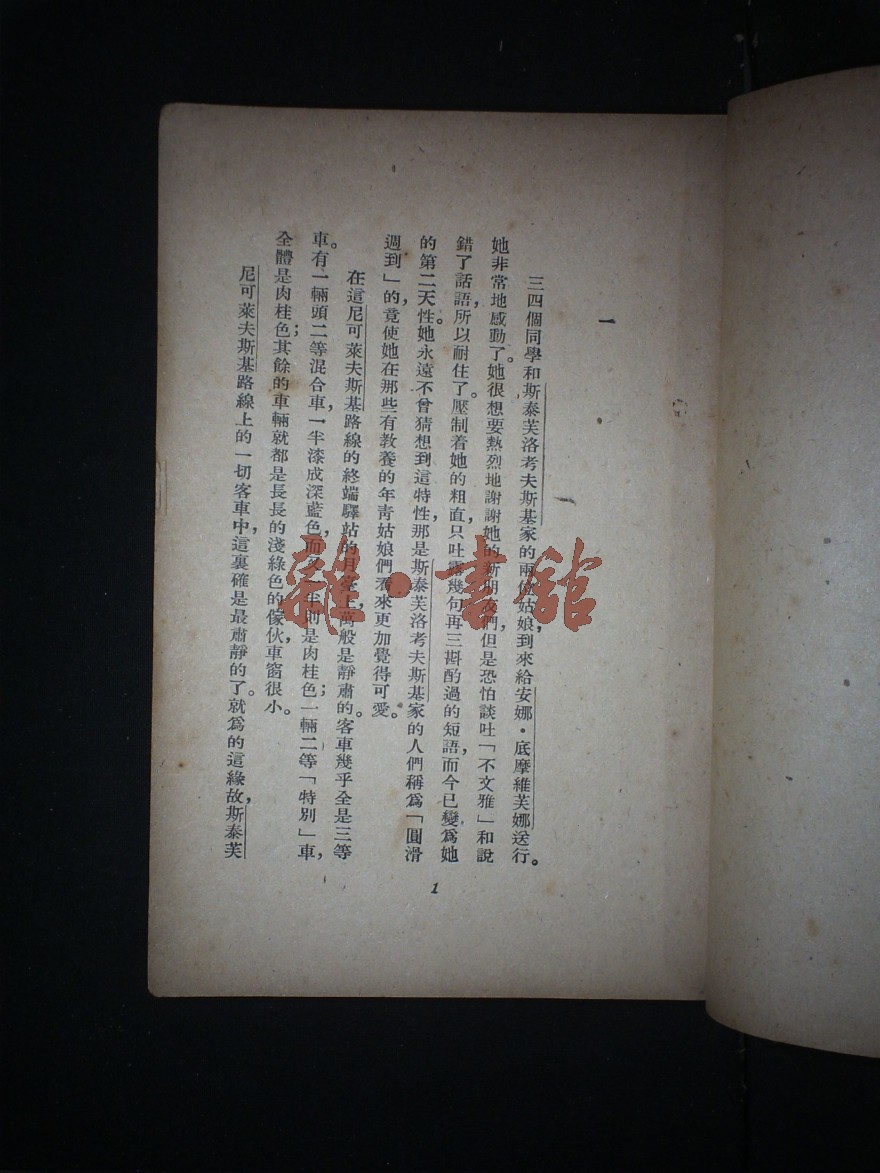 一
三四個同學和斯泰芙洛考夫斯基家的兩位姑娘，到來給安娜·底摩維芙娜送行。
她非常地感動了。她很想要熱烈地謝謝她的新朋友們，但是恐怕談吐「不文雅」和說
錯了話語，所以耐住了。壓制着她的粗直，只吐露幾句再三斟酌過的短語，而今已變爲她
的第二天性。她永遠不曾猜想到這特性，那是斯泰芙洛考夫斯基家的人們稱爲「圓滑
週到」的，竟使她在那些有教養的年青姑娘們看來更加覺得可愛。
在這尼可萊夫斯基路線的終端驛站的月臺上，萬般是靜肅的。客車幾乎全是三等
車。有一輛頭二等混合車，一半漆成深藍色，而另一半則是肉桂色；一輛二等「特別」車，
全體是肉桂色；其餘的車輛就都是長長的淺綠色的傢伙，車窗很小。
尼可萊夫斯基路線上的一切客車中，這裏確是最肅靜的了。就爲的這緣故，斯泰芙
1
雜·書館